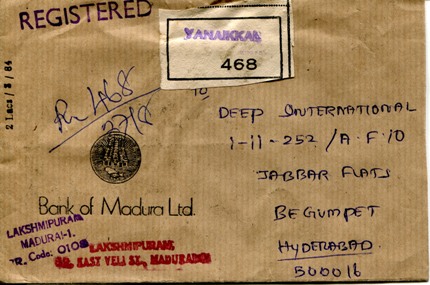 REGISTERED
YANAIKKAL
468
2 Lacs / 3 / 84
RL 468
27/8
To
DEEP INTERNATIONAL
1-11-252 / A.F. 10
JABBAR FLATS
BEGUMPET
HYDERABAD.
500016
Bank of Madura Ltd.
LAKSHMIPURAM
MADURAI-1.
BR. Code: 0108
LAKSHMIPURAM
EAST VELI ST., MADURAI